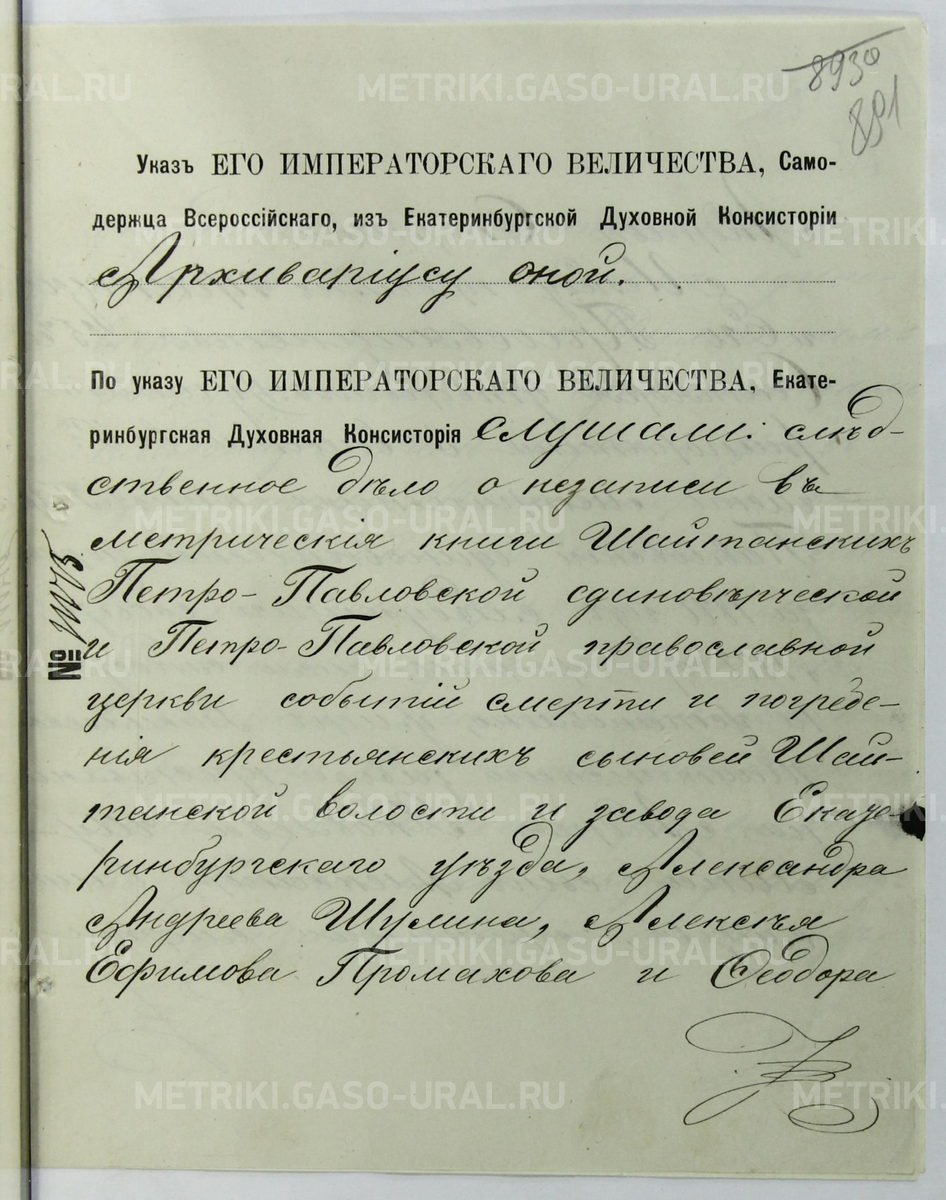 8930
891
Указъ ЕГО ИМПЕРАТОРСКАГО ВЕЛИЧЕСТВА, Само-
держца Всероссійскаго, изъ Екатеринбургской Духовной Консисторіи
Архиваріусу оной.
По указу ЕГО ИМПЕРАТОРСКАГО ВЕЛИЧЕСТВА, Екате-
ринбургская Духовная Консисторія слушали: слѣд-
ственное дѣло о незаписи въ
метрическія книги Шайтанскихъ
Петро-Павловской единовѣрческой
№
и Петро-Павловской православной
церкви событій смерти и погребе-
нія крестьянскихъ сыновей Шай-
танской волости и завода Екате-
ринбургскаго уѣзда, Александра
Андреева Шулина, Алексѣя
Ефимова Промахова и Ѳеодора
METRIKI.GASO-URAL.RU